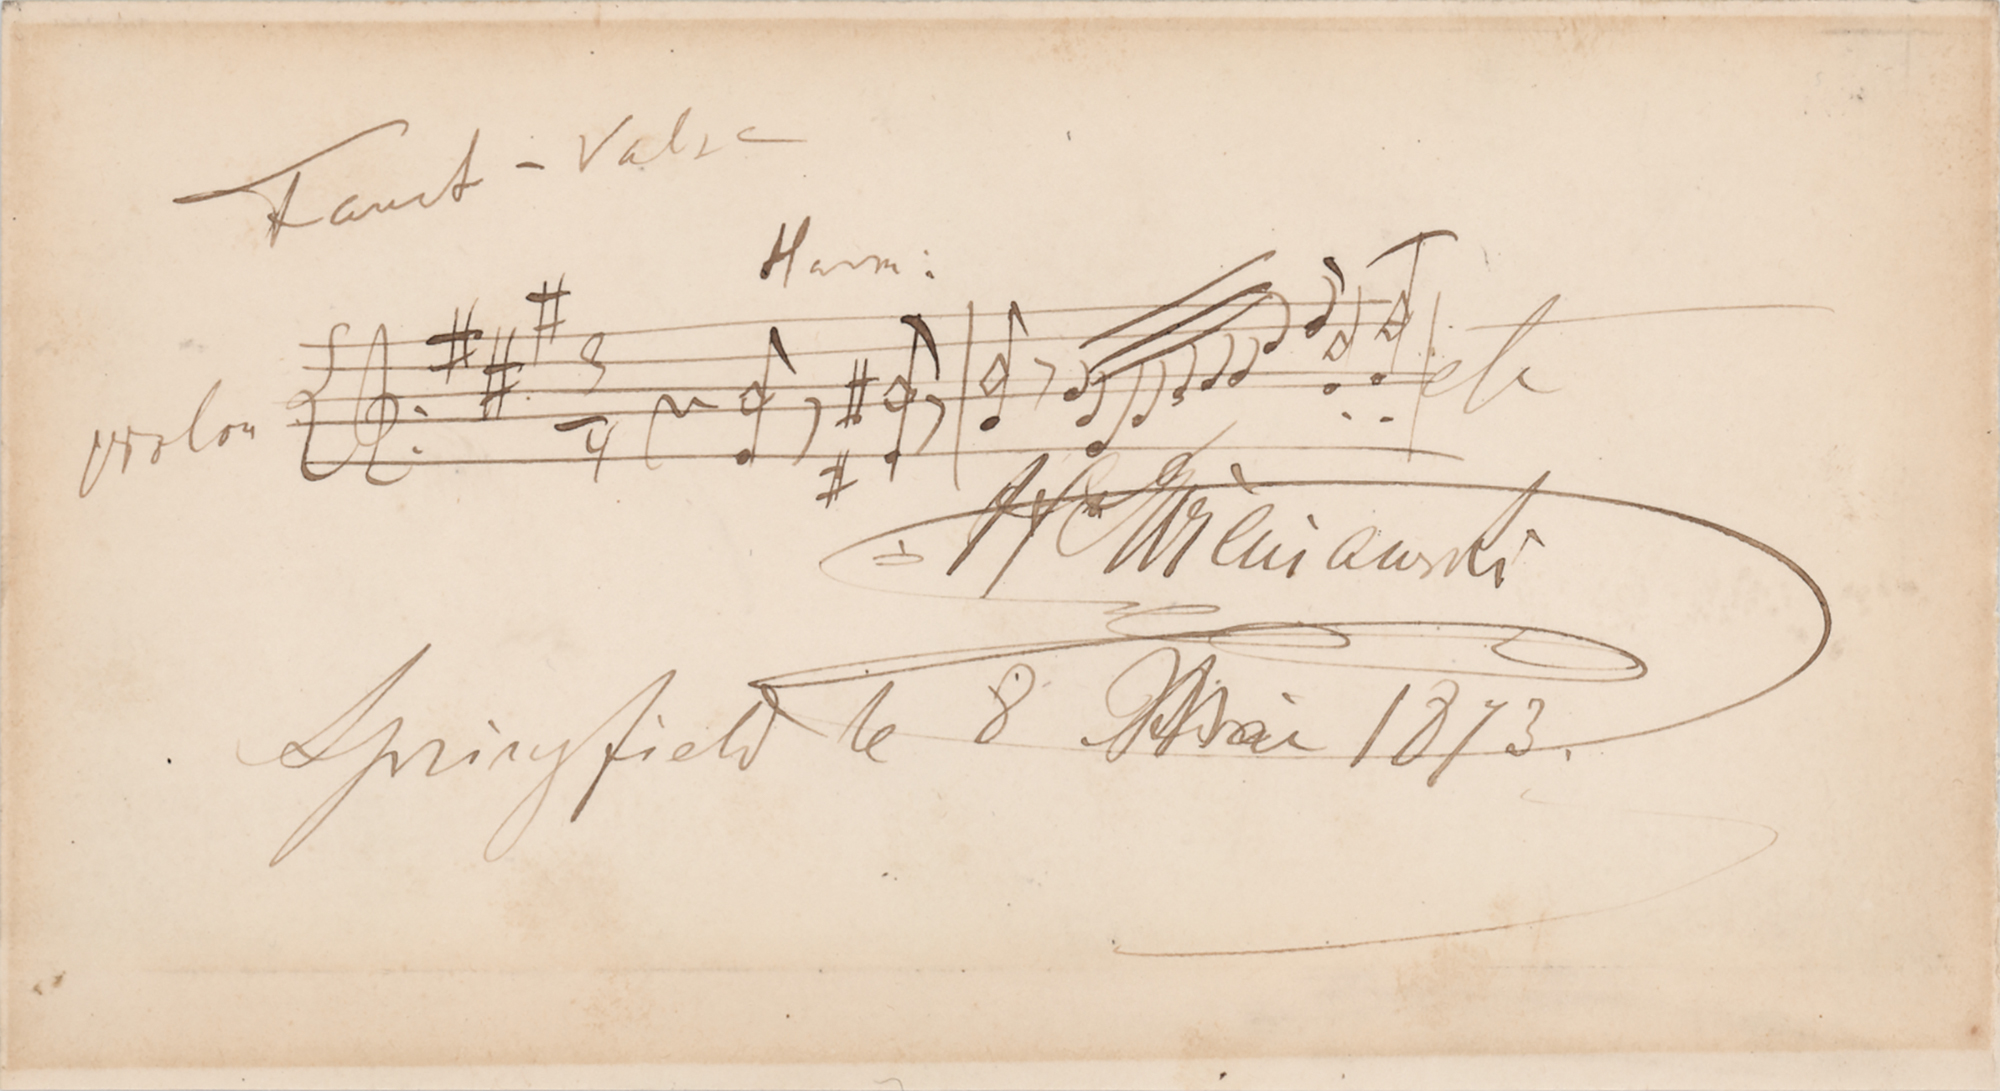 Faust - Valse
Harm:
violon 3/4 etc
H Wieniawski
Springfield le 8 Mai 1873.